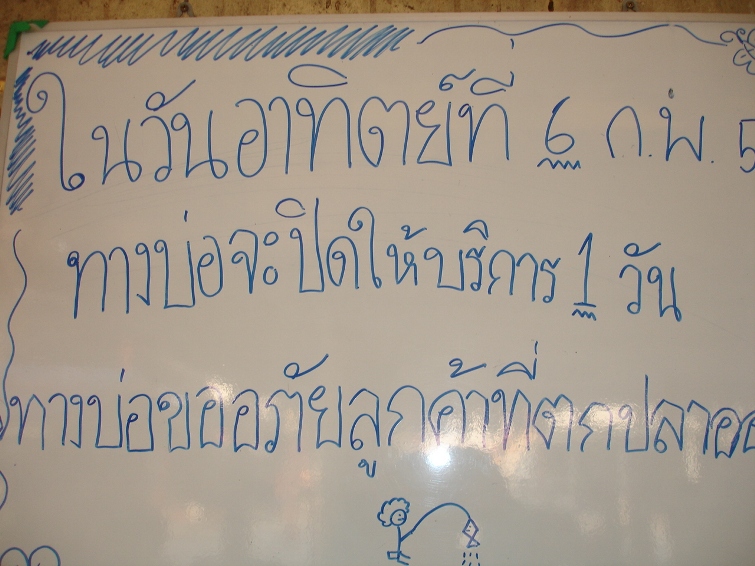 ในวันอาทิตย์ที่ 6 ก.พ.
ทางบ่อจะปิดให้บริการ 1 วัน
ทางบ่อขออภัยลูกค้าที่ตกปลา